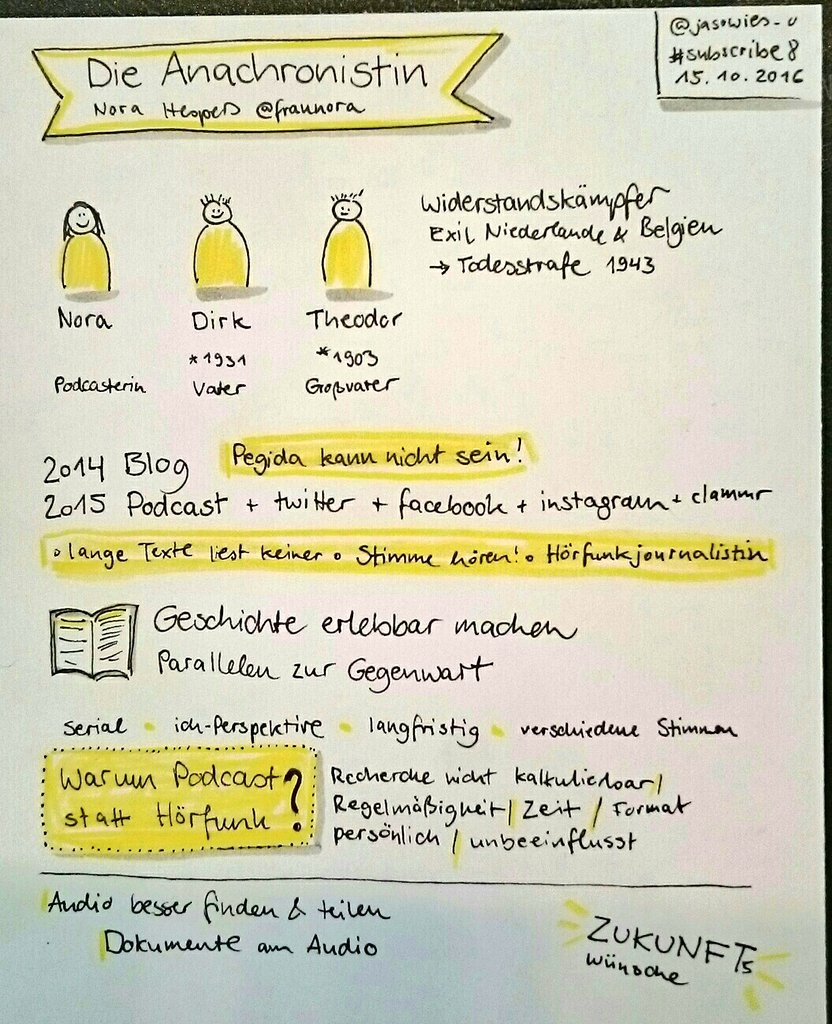 Die Anachronistin
Nora Hespers @fraunora
@jasowies_u
#subscribe8
15.10.2016
Widerstandskämpfer
Exil Niederlande & Belgien
→ Todesstrafe 1943
Nora
Podcasterin
Dirk
*1931
Vater
Theodor
*1903
Großvater
2014 Blog
Pegida kann nicht sein!
2015 Podcast + twitter + facebook + instagram + clammr
• lange Texte liest keiner • Stimme hören! • Hörfunkjournalistin
Geschichte erlebbar machen
Parallelen zur Gegenwart
serial • ich-Perspektive • langfristig • verschiedene Stimmen
Warum Podcast
statt Hörfunk?
Recherche nicht kalkulierbar /
Regelmäßigkeit / Zeit / Format
persönlich / unbeeinflusst
Audio besser finden & teilen
Dokumente am Audio
ZUKUNFTs
wünsche